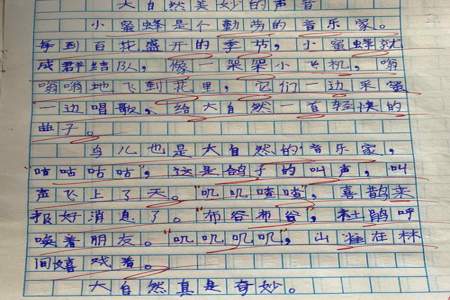 大自然美妙的声音
小蜜蜂是个勤劳的音乐家。
每到百花盛开的季节，小蜜蜂就
成群结队，像一架架小飞机，嗡
嗡嗡地飞到花里，它们一边采蜜
一边唱歌，给大自然一首轻快的
曲子。
鸟儿也是大自然的音乐家，
“咕咕咕咕”，这是鸽子的叫声，叫
声飞上了天。“叽叽喳喳”，喜鹊来
报好消息了。“布谷布谷”，杜鹃呼
唤着朋友。“叽叽叽叽”，山雀在林
间嬉戏着。
大自然真是奇妙。